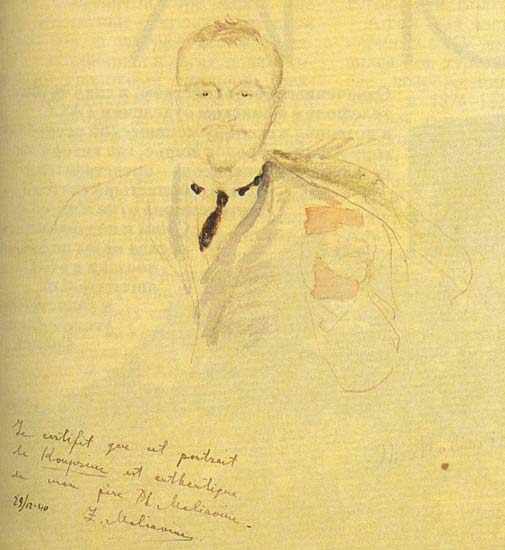 Je certifit que cet portrait
de Kouprine est authentique
de mon père Ph. Maliavine
29/12-40 Z. Maliavine